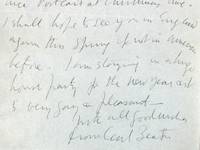 nice Portrait at Christmas time.
I shall hope to see you in England
again this Spring if not in America
before. I am staying in a huge
house party for the new year and
is very gay & pleasant
with all good wishes
from Cecil Beaton